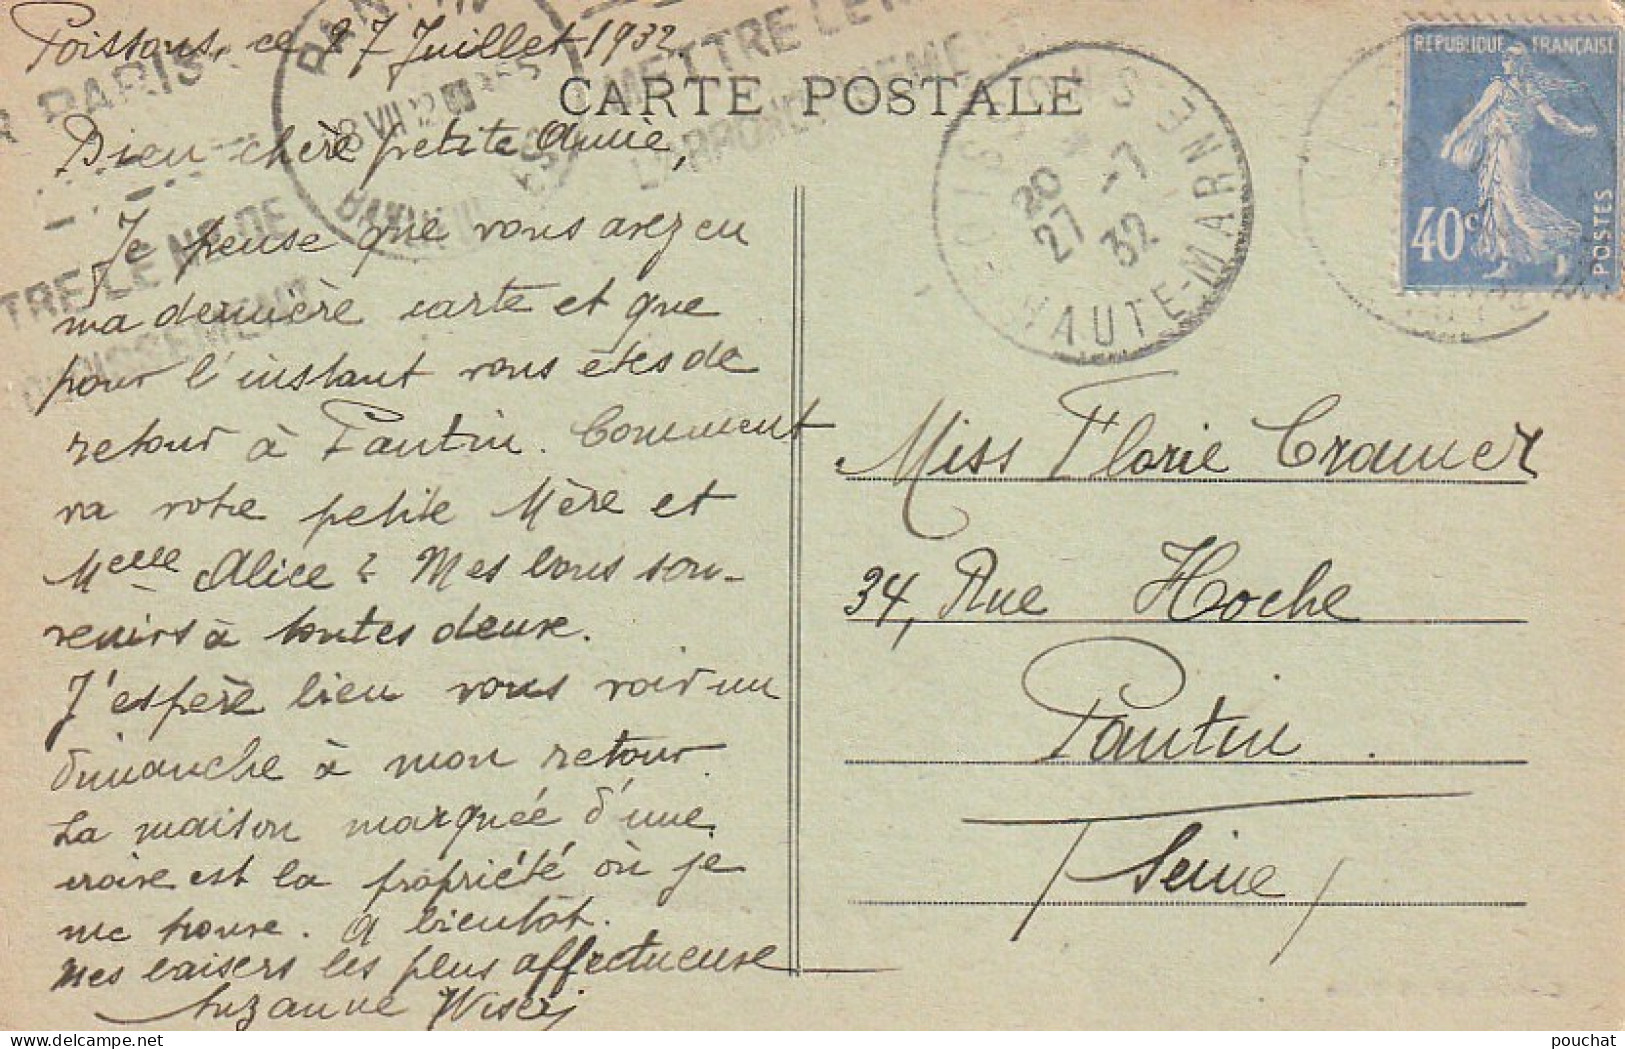 Poissons, ce 27 Juillet 1932.
CARTE POSTALE
Bien chère petite Amie,
Je pense que vous avez eu
ma dernière carte et que
pour l'instant vous êtes de
retour à Pantin. Comment
va votre petite Mère et
Melle Alice ? Mes bons sou-
venirs à toutes deux.
J'espère bien vous voir un
dimanche à mon retour.
La maison marquée d'une
croix est la propriété où je
me trouve. A bientôt.
Mes baisers les plus affectueux
Suzanne
REPUBLIQUE FRANÇAISE
40c
POSTES
POISSONS
20
27 -7
32
HAUTE-MARNE
PANTIN
PARIS
METTRE LE N
TRE LE N° DE
Miss Florie Cramer
34, Rue Hoche
Pantin.
(Seine)
pouchat